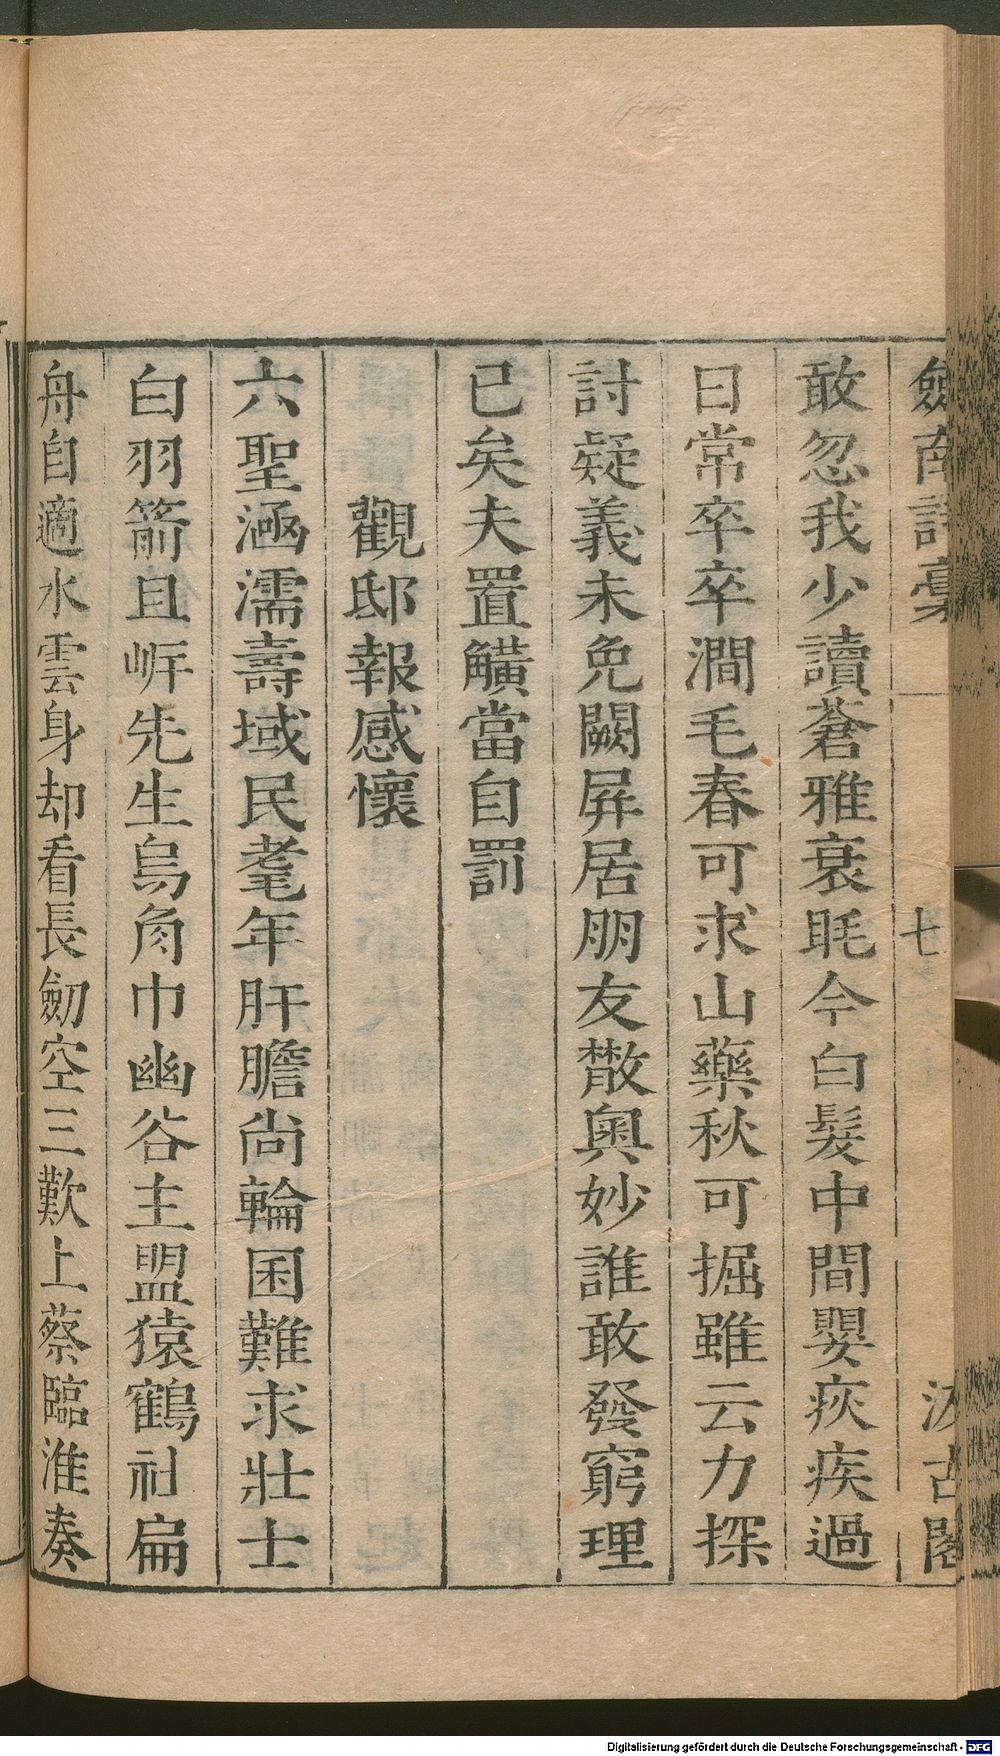 劒南詩稾
七
汲古閣
敢忽我少讀蒼雅衰眊今白髮中間嬰疢疾過
日常卒卒澗毛春可求山藥秋可掘雖云力探
討疑義未免闕屏居朋友散奥妙誰敢發窮理
已矣夫置觵當自罰
觀邸報感懷
六聖涵濡壽域民耄年肝膽尚輪囷難求壯士
白羽箭且岸先生烏角巾幽谷主盟猿鶴社扁
舟自適水雲身却看長劒空三歎上蔡臨淮奏
Digitalisierung gefördert durch die Deutsche Forschungsgemeinschaft - DFG